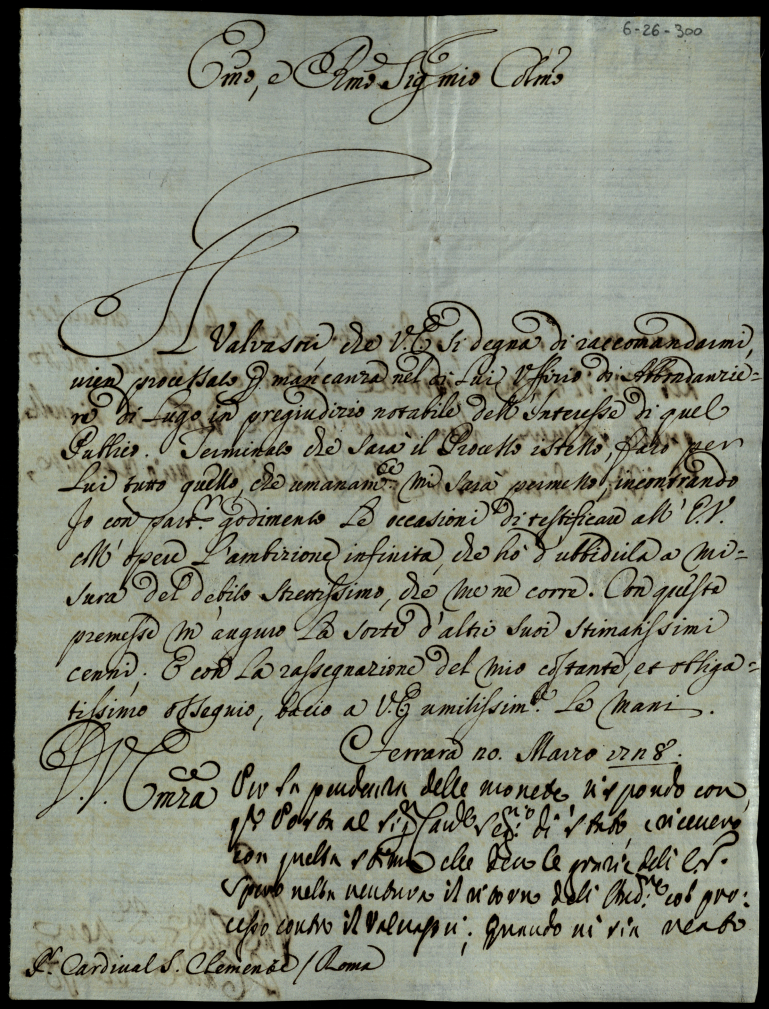 6-26-300
Em̃o, e Rm̃o Sig mio Colm̃o
Il Valvasori che V.E. si degna di raccomandarmi,
vien processato p mancanza nel di Lui Uffizio di Abbondanzie=
re di Lugo in pregiudizio notabile dell'Interesse di quel
Publico. Terminato che sarà il Processo istesso, farò per
Lui tutto quello, che umanam.te mi sarà permesso, incontrando
Io con part.r godimento le occasioni di testificare all'E.V.
coll'opere l'ambizione infinita, che hò d'ubbidirla a mi=
sura del debito strettissimo, che me ne corre. Con queste
premesse m'auguro la sorte d'altri suoi stimatissimi
cenni; E con la rassegnazione del mio costante, et obliga=
tissimo ossequio, bacio a V.E. umilissim.te le mani.
Ferrara Marzo
V. Em̃za Per la pendenza delle monete rispondo con
Posta al sig di stato, e riceverò
con quella stima che devo le grazie dell'E.V.
Spero nella ventura il ritorno col pro=
cesso contro il Valvasori; Quando vi sia reato
S.r Cardinal S. Clemente / Roma